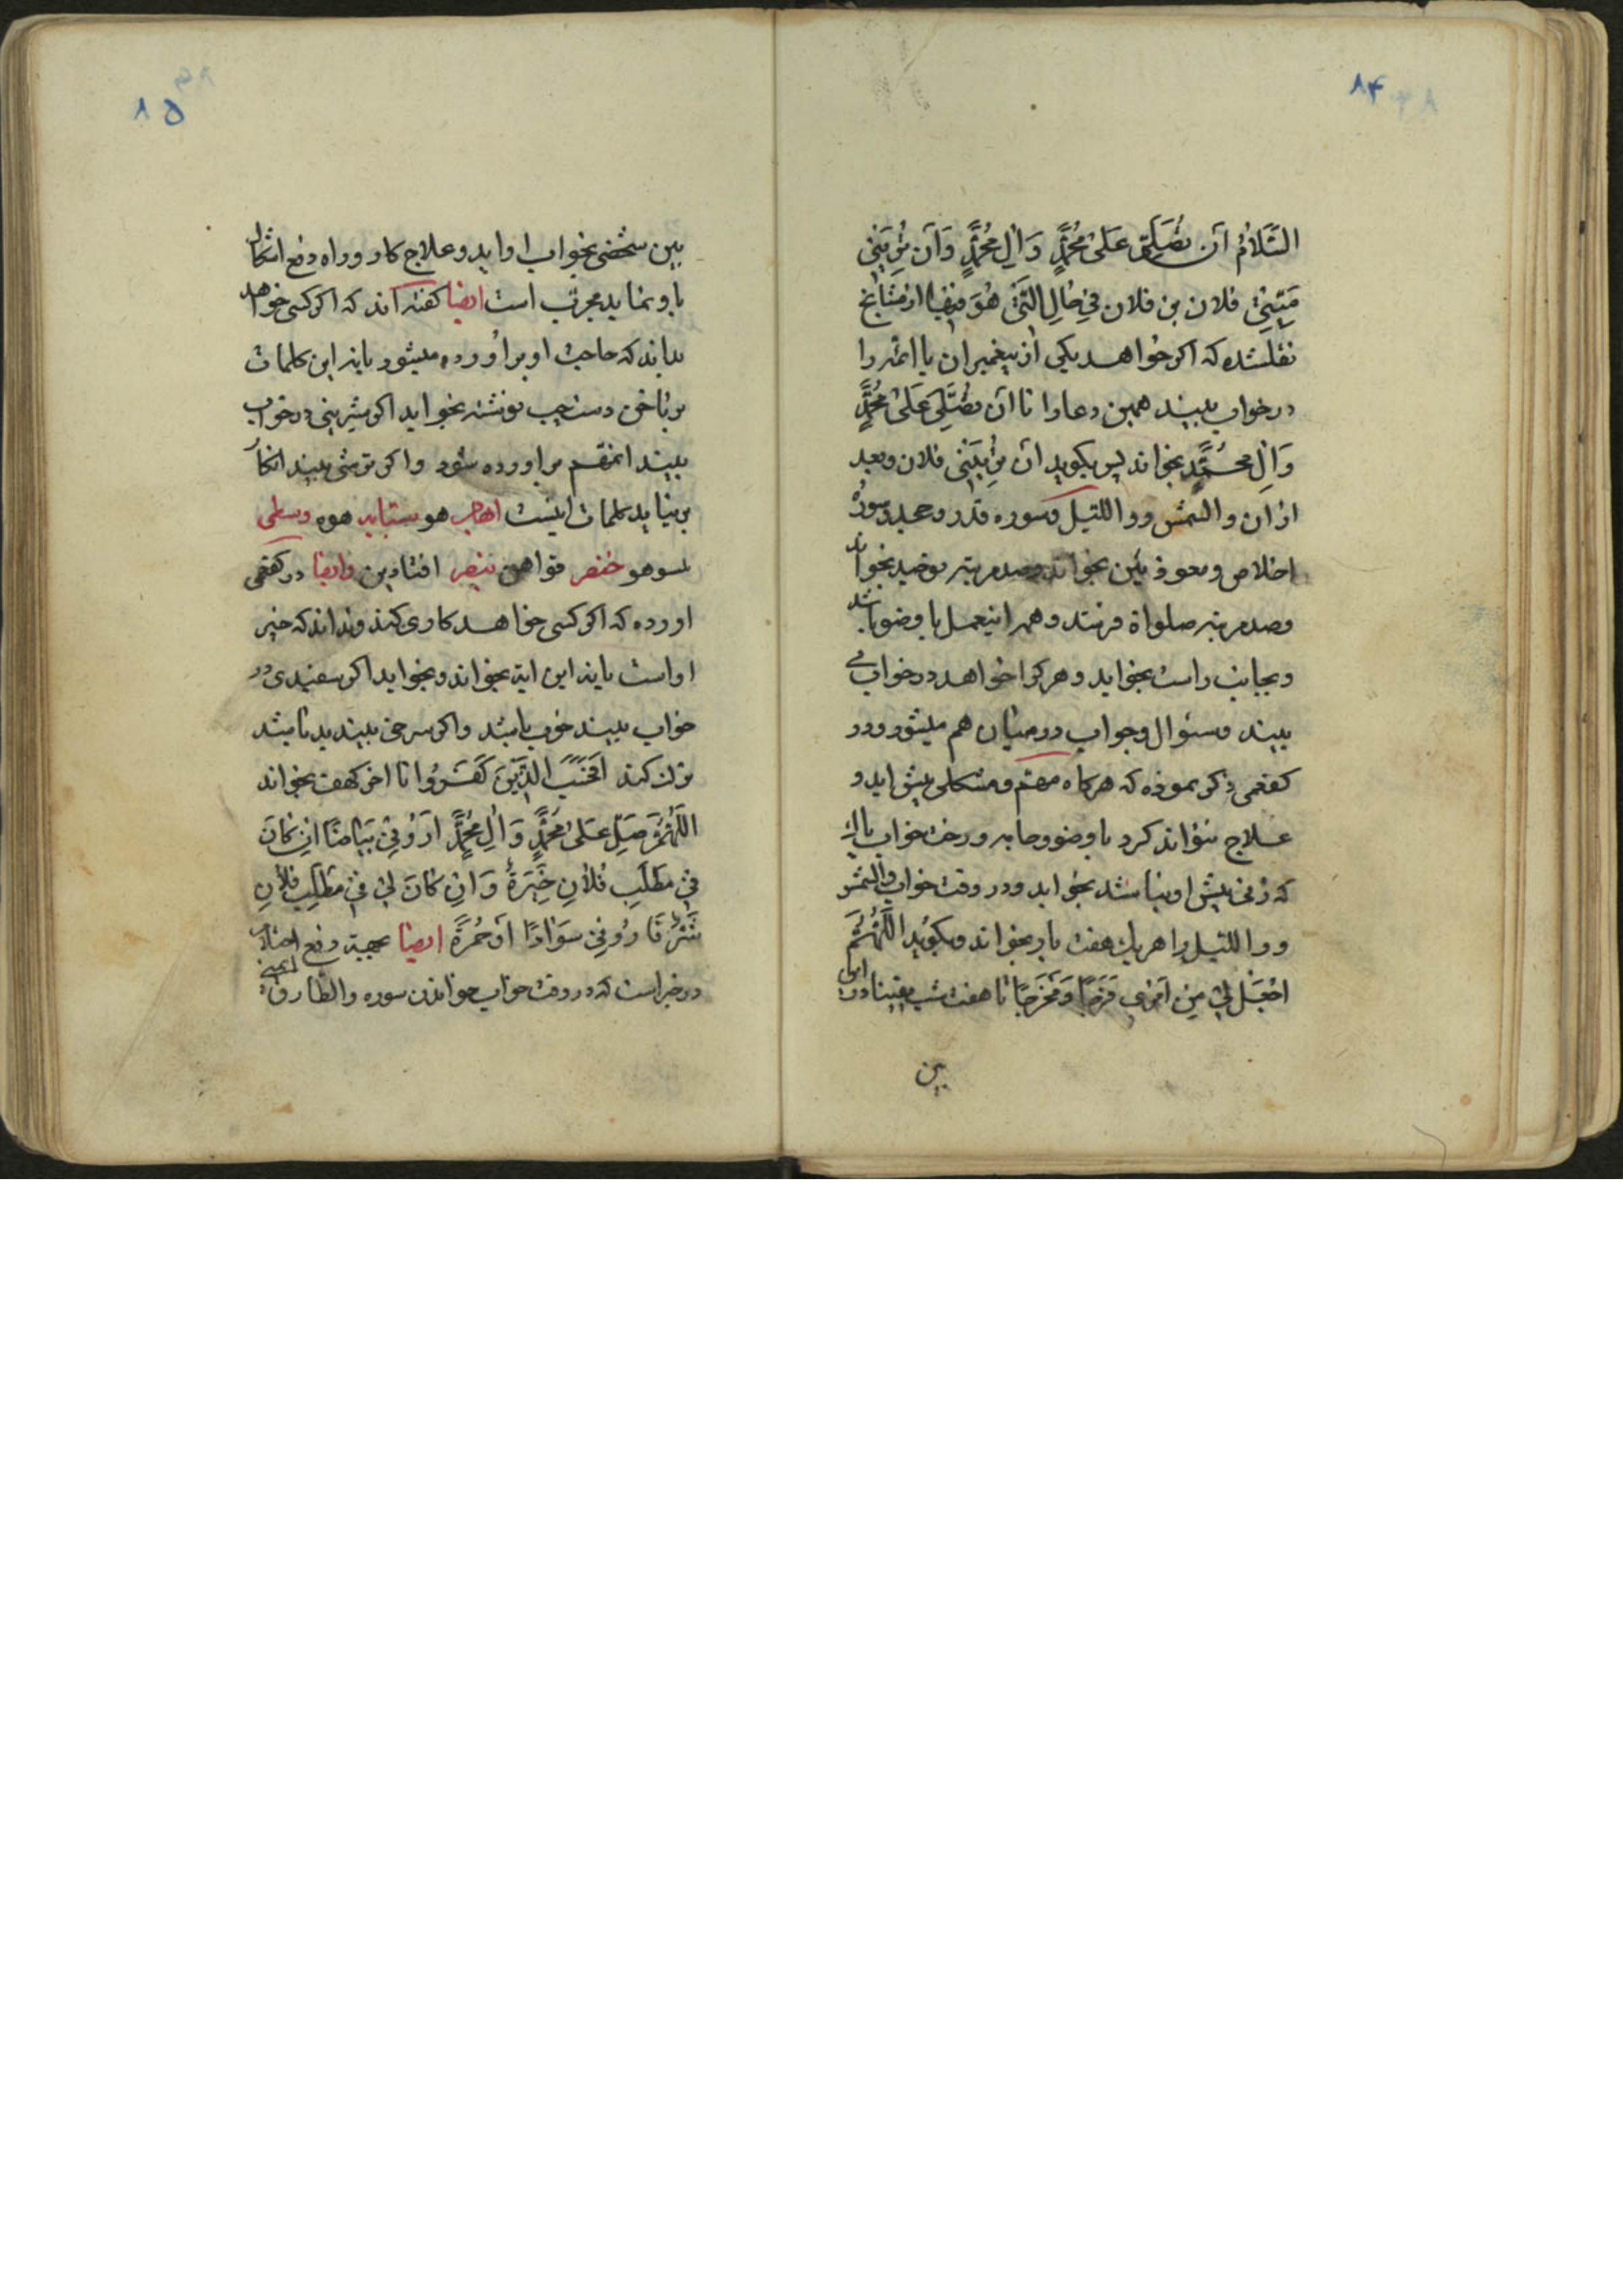 ۸۴
السَّلامُ اَن تُصَلِّیَ عَلیٰ مُحَمَّدٍ وَ اٰلِ مُحَمَّدٍ وَ اَن تُرِیَنی
مَیِّتِی فلان بن فلان فِی حٰالِ الَّتی هُوَ فیها از مشایخ
نقلشده که اکر خواهد یکی از پیغمبران یا ائمه را
در خواب ببیند همین دعا را تا ان تُصَلّی عَلیٰ مُحَمَّدٍ
وَ اٰلِ محَمَّدٍ بخواند پس بکوید ان تُرِیَنی فلان و بعد
از ان والشمس و واللیل و سوره قدر و جحد و سورهٔ
اخلاص و معوذتین بخواند و صد مرتبه توحید بخواند
و صد مرتبه صلواة فرستد و همه اینعمل با وضو باشد
و بجانب راست بخوابد و هر کرا خواهد در خواب می
بیند و سئوال و جواب در میان هم میشود و در
کفعمی ذکر نموده که هر کاه مهم و مشکلی پیش اید و
علاج نتواند کرد با وضو و جامه و رخت خواب پاک
که زنی پیش او نباشد بخوابد و در وقت خواب والشمس
و واللیل را هر یک هفت بار بخواند و بکوید اَللّهُمَّ
اجْعَل لی مِن اَمری فَرَجًا وَ مَخْرَجًا تا هفت شب یقینا در این
بین
۸۵
بین شخصی بخواب او اید و علاج کار و راه دفع اشکال
باو نماید مجرب است ایضا کفته اند که اکر کسی خواهد
بداند که حاجت او براورده میشود یا نه این کلمات
بر ناخن دست چپ نوشته بخوابد اکر شیرینی در خواب
ببیند انمهم براورده شود و اکر ترشی ببیند انکار
بر نیاید کلمات اینست ابهام هو سبابه هوه وسطی
لسوهو خنصر قواهن بنصر افتادین وایضا در کفعمی
اورده که اکر کسی خواهد کاری کند و نداند که خیر
او است یا نه این ایة بخواند و بخوابد اکر سفیدی در
خواب ببیند خوب باشد و اکر سرخی ببیند بد باشد
ترک کند اَفَحَسِبَ الَّذینَ کَفَرُوا تا اخر کهف بخواند
اَللّهُمَّ صَلِّ عَلیٰ مُحَمَّدٍ وَ اٰلِ مُحَمَّدٍ اَرَوْنی بَیٰاضًا اِن کٰانَ
فی مَطلَبِ فُلانٍ خِیَرَةً وَ اِن کٰانَ لی فی مَطلَبِ فُلانٍ
شَرٌّ فَارُونی سَوٰادًا اَوْ حُمْرَةً ایضا بجهة دفع احتلام
در خبر است که در وقت خواب خواندن سوره والطارق ایمنی